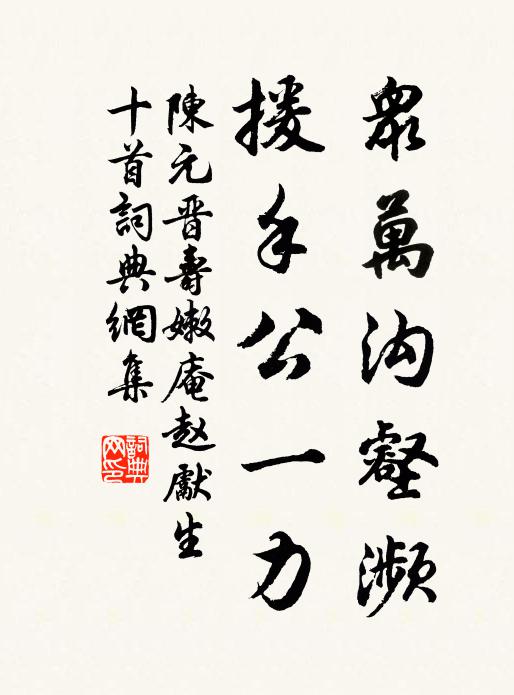 眾萬沟壑濒
援手公一力
陳元晋壽嫩庵赵獻生
十首詞典網集
詞典网印